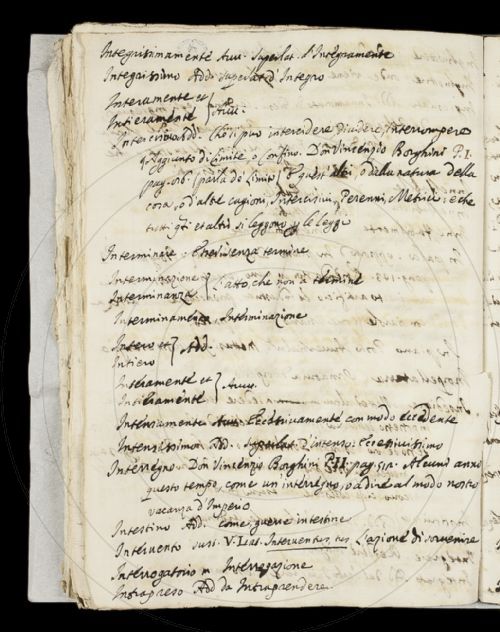 Integrissimamente Avv. Superlat. d'Integramente
Integrissimo Add. Superlat. d'Integro
Interamente et
Intieramente } Avv.
Intercisivo Add. Che si può intercidere dividere Interrompere
aggiunto di Limite, o Confino. Don Vincenzio Borghini P. I.
(parla de' Limiti) E quest' altri, o dalla natura della
cosa, o d'altre cagioni, Intercisivi, Perenni, e che
tutti q̃ti et altri si leggono
Interminare Essere senza termine
Interminazione
Interminanza } L'atto, che non à termine
Interminamento, Interminazione
Intero et
Intiero } Add.
Interamente et
Intieramente } Avv.
Intensivamente Avv. Eccessivamente con modo eccedente
Intensissimo Add. Superlat. d'intenso: Eccessivissimo
Interregno. Don Vincenzio Borghini P. II. pag. Alcuni anno
questo tempo, come un interregno, o a dire al modo nostro
vacanza d'Impero
Intestino Add. come guerre intestine
Intervento sust. V. Lat. Interventus, tus L'azione di sovvenire
Interrogatorio Interrogazione
Intrapreso Add da Intraprendere.